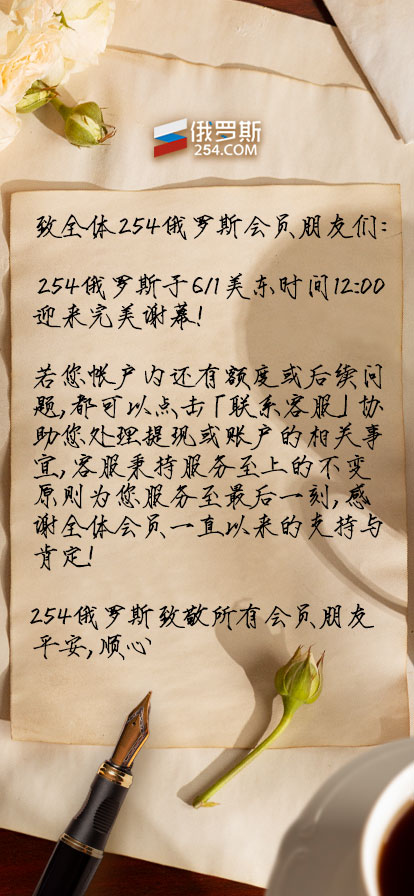 俄罗斯
254.COM
致全体254俄罗斯会员朋友们:
254俄罗斯于6/1美东时间12:00
迎来完美谢幕!
若您帐户内还有额度或后续问
题,都可以点击「联系客服」协
助您处理提现或账户的相关事
宜,客服秉持服务至上的不变
原则为您服务至最后一刻,感
谢全体会员一直以来的支持与
肯定!
254俄罗斯致敬所有会员朋友
平安,顺心